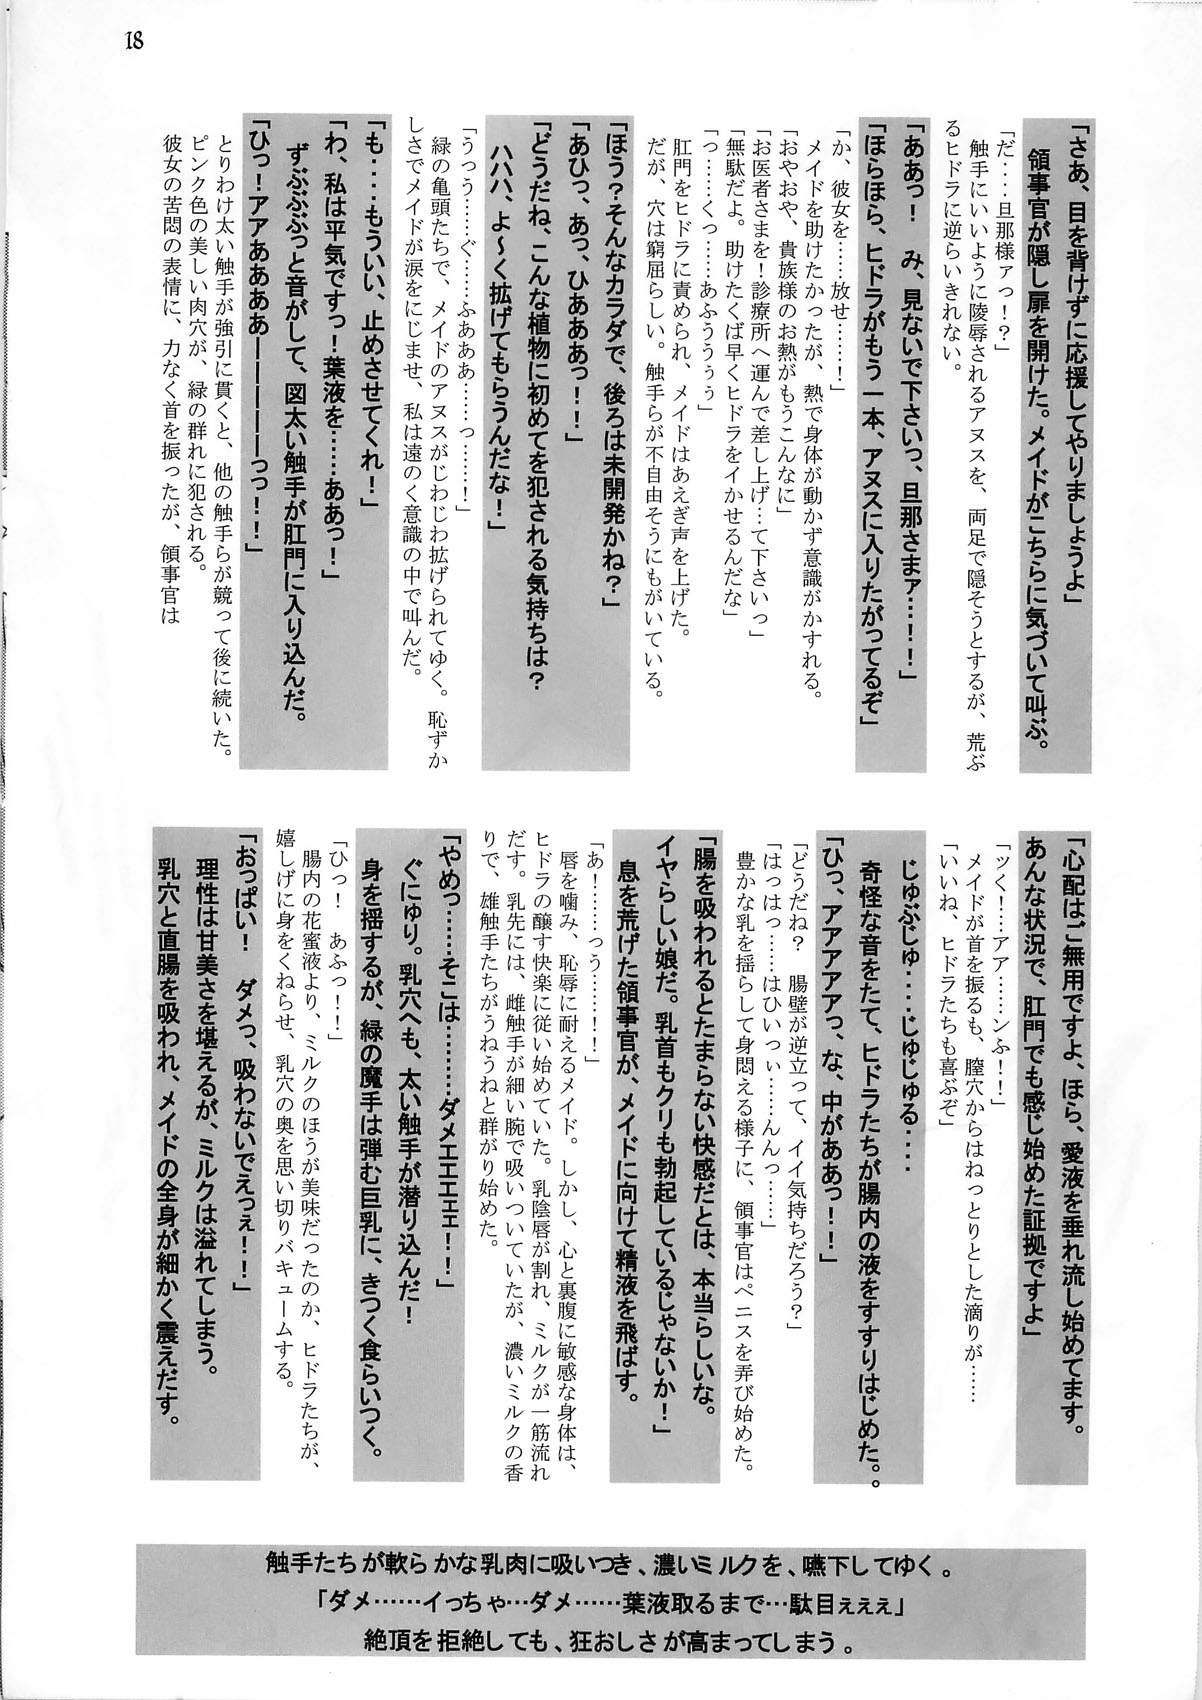 18
「さあ、目を背けずに応援してやりましょうよ」
領事官が隠し扉を開けた。メイドがこちらに気づいて叫ぶ。
「だ‥‥旦那様ァっ！？」
触手にいいように陵辱されるアヌスを、両足で隠そうとするが、荒ぶ
るヒドラに逆らいきれない。
「ああっ！　み、見ないで下さいっ、旦那さまァ…！！」
「ほらほら、ヒドラがもう一本、アヌスに入りたがってるぞ」
「か、彼女を……放せ……！」
メイドを助けたかったが、熱で身体が動かず意識がかすれる。
「おやおや、貴族様のお熱がもうこんなに」
「お医者さまを！診療所へ運んで差し上げ…て下さいっ」
「無駄だよ。助けたくば早くヒドラをイかせるんだな」
「っ……くっ……あふううぅぅ」
肛門をヒドラに責められ、メイドはあえぎ声を上げた。
だが、穴は窮屈らしい。触手らが不自由そうにもがいている。
「ほう？そんなカラダで、後ろは未開発かね？」
「あひっ、あっ、ひあああっ！！」
「どうだね、こんな植物に初めてを犯される気持ちは？
ハハハ、よ～く拡げてもらうんだな！」
「うっう……ぐ……ふあああ……っ……！」
緑の亀頭たちで、メイドのアヌスがじわじわ拡げられてゆく。恥ずか
しさでメイドが涙をにじませ、私は遠のく意識の中で叫んだ。
「も‥‥もういい、止めさせてくれ！」
「わ、私は平気ですっ！葉液を……ああっ！」
ずぶぶぶっと音がして、図太い触手が肛門に入り込んだ。
「ひっ！アアああああーーーーーっっ！！」
とりわけ太い触手が強引に貫くと、他の触手らが競って後に続いた。
ピンク色の美しい肉穴が、緑の群れに犯される。
彼女の苦悶の表情に、力なく首を振ったが、領事官は
「心配はご無用ですよ、ほら、愛液を垂れ流し始めてます。
あんな状況で、肛門でも感じ始めた証拠ですよ」
「ッく！…アア……ンふ！！」
メイドが首を振るも、膣穴からはねっとりとした滴りが……
「いいね、ヒドラたちも喜ぶぞ」
じゅぶじゅ‥‥じゅじゅる‥‥
奇怪な音をたて、ヒドラたちが腸内の液をすすりはじめた。。
「ひっ、アアアアっ、な、中がああっ！！」
「どうだね？　腸壁が逆立って、イイ気持ちだろう？」
「はっはっ……はひいっぃ……んんっ……」
豊かな乳を揺らして身悶える様子に、領事官はペニスを弄び始めた。
「腸を吸われるとたまらない快感だとは、本当らしいな。
イヤらしい娘だ。乳首もクリも勃起しているじゃないか！」
息を荒げた領事官が、メイドに向けて精液を飛ばす。
「あ！……っう……！！」
唇を噛み、恥辱に耐えるメイド。しかし、心と裏腹に敏感な身体は、
ヒドラの醸す快楽に従い始めていた。乳陰唇が割れ、ミルクが一筋流れ
だす。乳先には、雌触手が細い腕で吸いついていたが、濃いミルクの香
りで、雄触手たちがうねうねと群がり始めた。
「やめっ……そこは………ダメエエエェ！！」
ぐにゅり。乳穴へも、太い触手が潜り込んだ！
身を揺するが、緑の魔手は弾む巨乳に、きつく食らいつく。
「ひっ！　あふっ！！」
腸内の花蜜液より、ミルクのほうが美味だったのか、ヒドラたちが、
嬉しげに身をくねらせ、乳穴の奥を思い切りバキュームする。
「おっぱい！　ダメっ、吸わないでえっぇ！！」
理性は甘美さを堪えるが、ミルクは溢れてしまう。
乳穴と直腸を吸われ、メイドの全身が細かく震えだす。
触手たちが軟らかな乳肉に吸いつき、濃いミルクを、嚥下してゆく。
「ダメ……イっちゃ…ダメ……葉液取るまで…駄目ぇぇぇ」
絶頂を拒絶しても、狂おしさが高まってしまう。